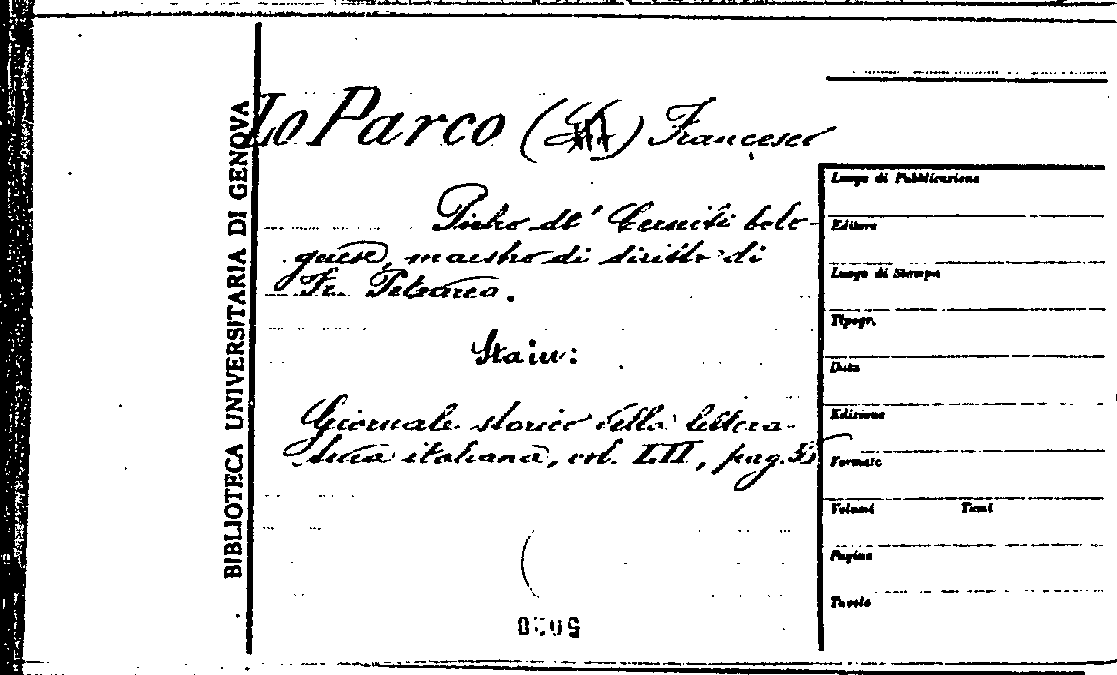 BIBLIOTECA UNIVERSITARIA DI GENOVA
Lo Parco ( ) Francesco
Pietro de' Cerniti bolo-
gnese, maestro di diritto di
Fr. Petrarca.
Sta in:
Giornale storico della lettera-
tura italiana, vol. LII, pag.
Luogo di Pubblicazione
Editore
Luogo di Stampa
Tipogr.
Data
Edizione
Formato
Volumi Tomi
Pagine
Tavole